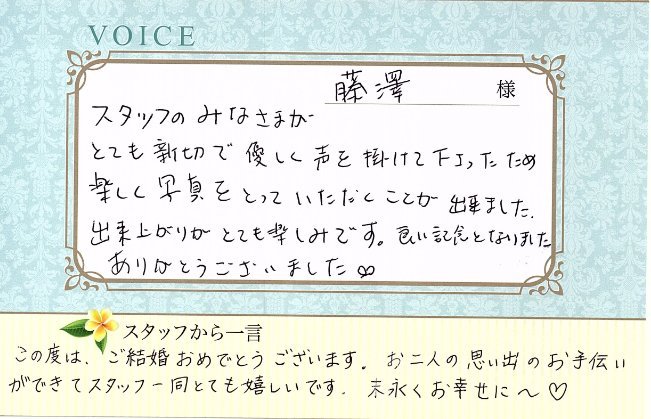 VOICE
藤澤 様
スタッフの みなさまが
とても 新切で 優しく 声を 掛けて下さったため
楽しく 写真を とって いただくことが 出来ました.
出来上がりが とても楽しみです。良い記念となりました
ありがとうございました♡
スタッフから一言
この度は、ご結婚おめでとうございます。お二人の思い出のお手伝い
ができてスタッフ一同とても嬉しいです. 末永くお幸せに〜♡